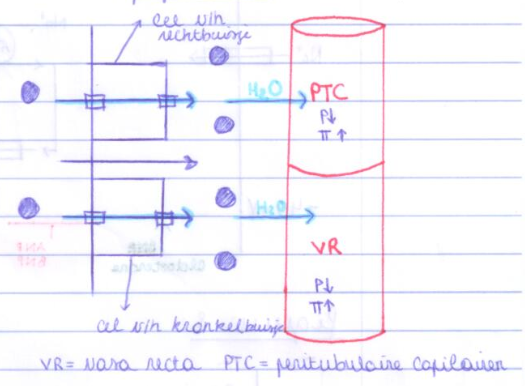 cel v/h
rechtbuisje
H₂O
PTC
P↓
π↑
H₂O
VR
P↓
π↑
cel v/h kronkelbuisje
VR = vasa recta PTC = peritubulaire capilairen